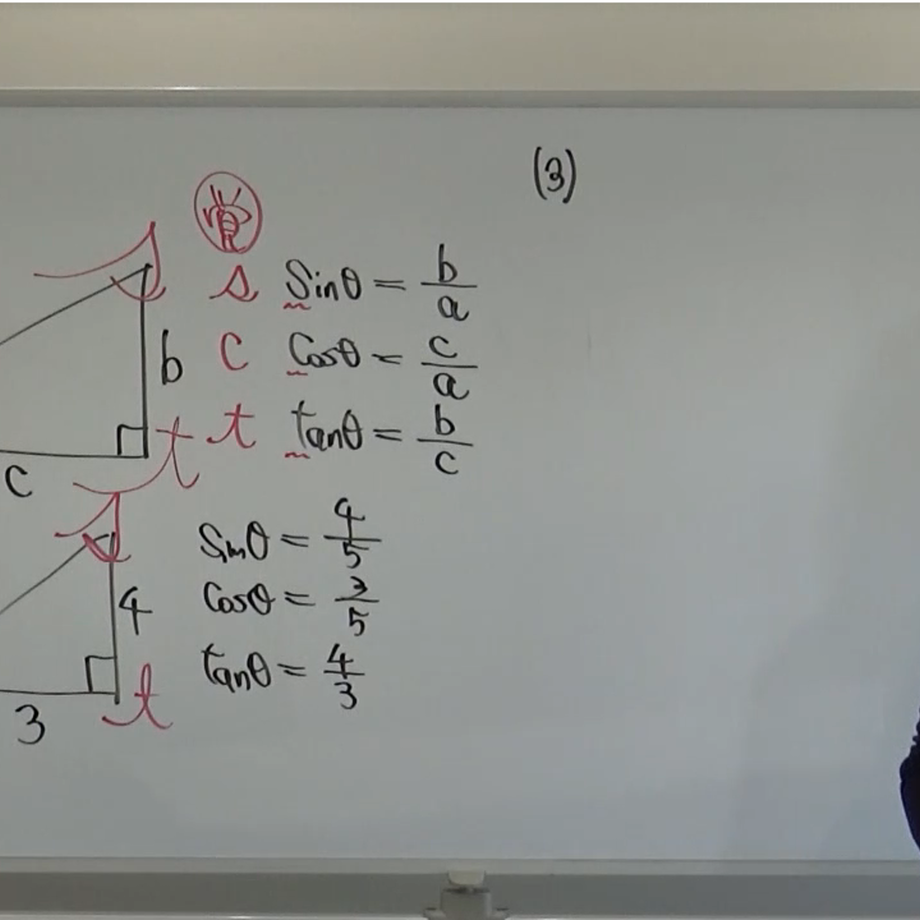 (3)
s sinθ = b/a
c cosθ = c/a
t tanθ = b/c
b
c
t
sinθ = 4/5
cosθ = 3/5
tanθ = 4/3
4
3
t